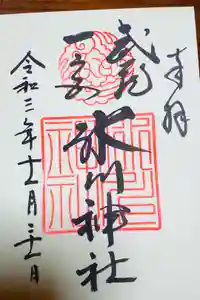 奉拝
武蔵
一宮
氷川神社
令和三年十二月二十一日